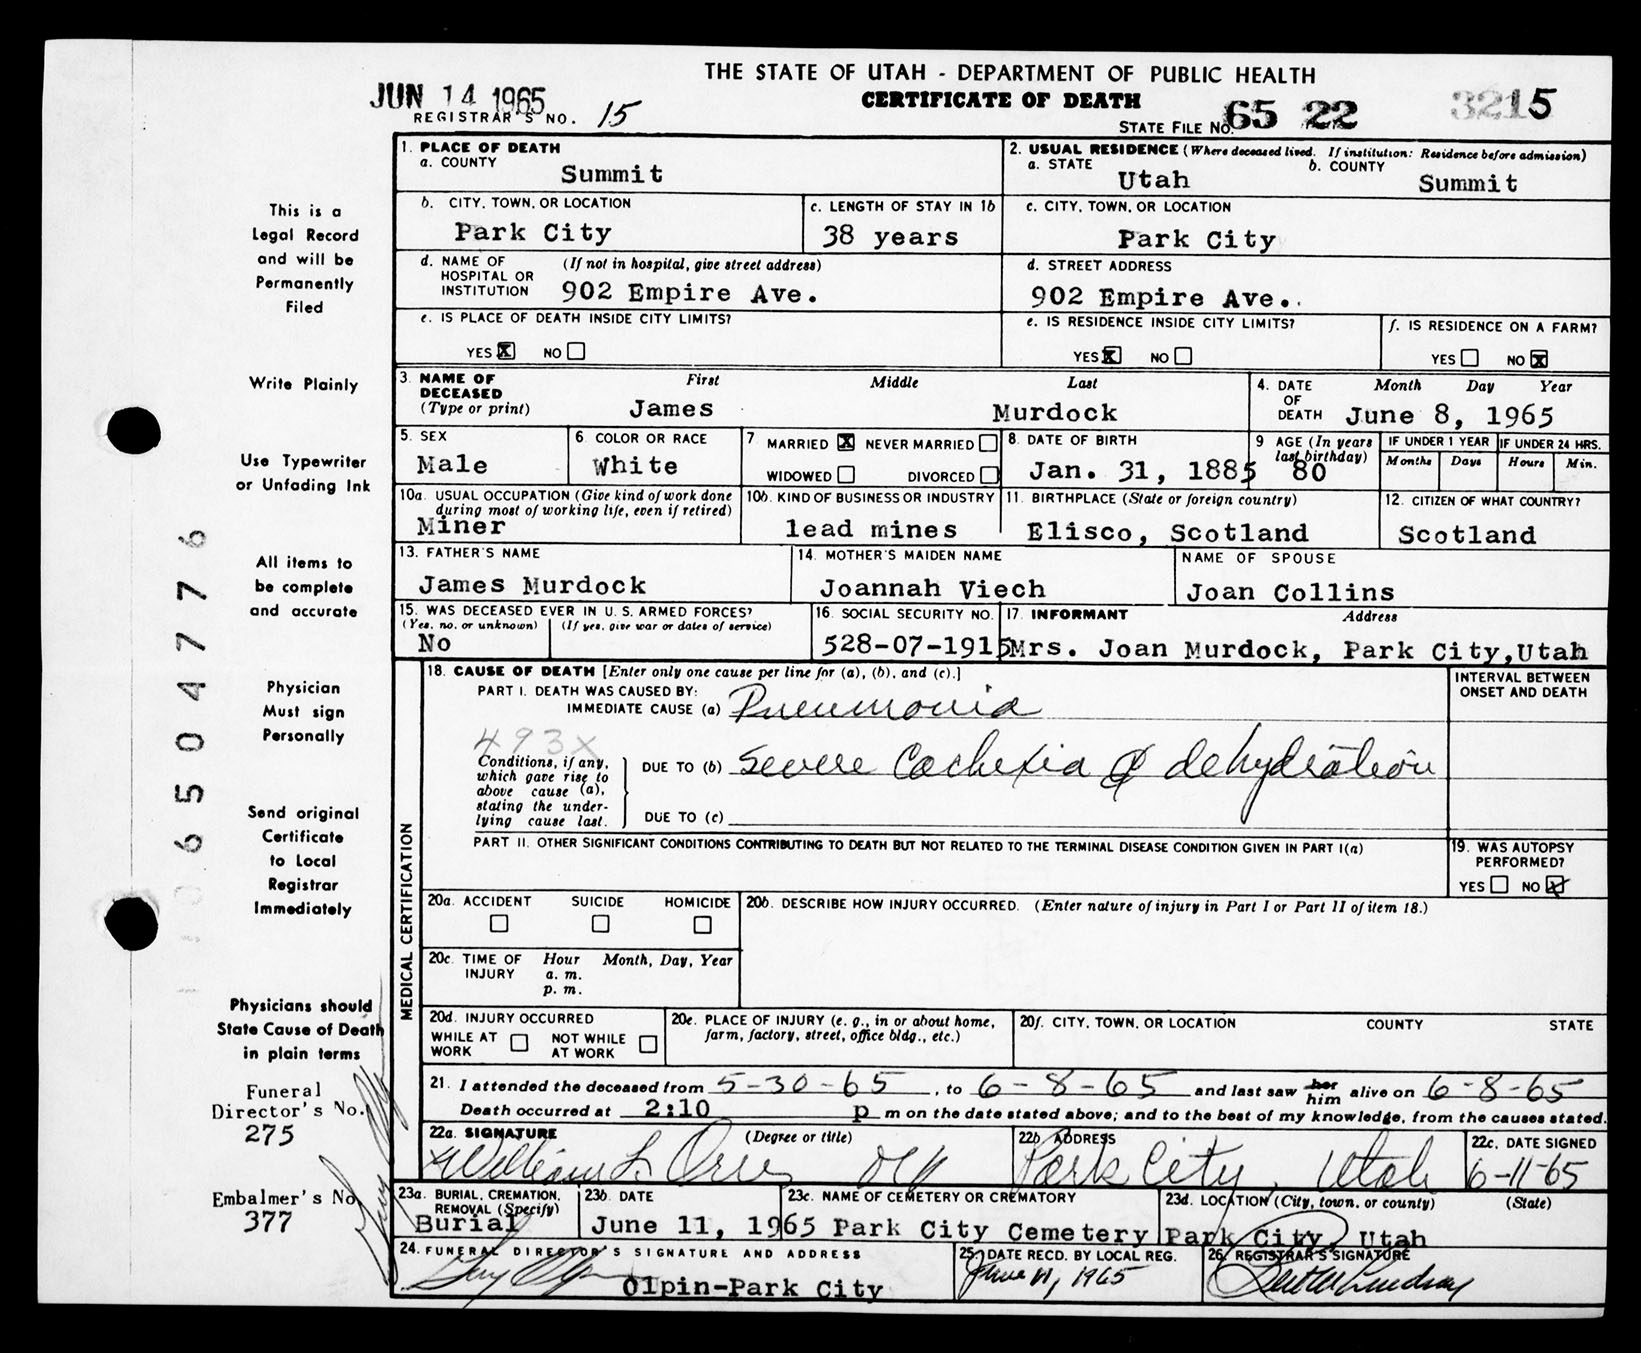 THE STATE OF UTAH - DEPARTMENT OF PUBLIC HEALTH
CERTIFICATE OF DEATH
JUN 14 1965
REGISTRAR'S NO. 15
STATE FILE NO. 65 22 3215
1. PLACE OF DEATH
a. COUNTY Summit
2. USUAL RESIDENCE (Where deceased lived. If institution: Residence before admission)
a. STATE Utah b. COUNTY Summit
b. CITY, TOWN, OR LOCATION Park City
c. LENGTH OF STAY IN 1b 38 years
c. CITY, TOWN, OR LOCATION Park City
d. NAME OF HOSPITAL OR INSTITUTION (If not in hospital, give street address) 902 Empire Ave.
d. STREET ADDRESS 902 Empire Ave.
e. IS PLACE OF DEATH INSIDE CITY LIMITS? YES X NO
e. IS RESIDENCE INSIDE CITY LIMITS? YES X NO
f. IS RESIDENCE ON A FARM? YES NO X
3. NAME OF DECEASED (Type or print) First Middle Last
James Murdock
4. DATE OF DEATH Month Day Year
June 8, 1965
5. SEX Male
6. COLOR OR RACE White
7 MARRIED X NEVER MARRIED WIDOWED DIVORCED
8. DATE OF BIRTH Jan. 31, 1885
9 AGE (In years last birthday) 80
IF UNDER 1 YEAR Months Days
IF UNDER 24 HRS. Hours Min.
10a. USUAL OCCUPATION (Give kind of work done during most of working life, even if retired) Miner
10b. KIND OF BUSINESS OR INDUSTRY lead mines
11. BIRTHPLACE (State or foreign country) Elisco, Scotland
12. CITIZEN OF WHAT COUNTRY? Scotland
13. FATHER'S NAME James Murdock
14. MOTHER'S MAIDEN NAME Joannah Viech
NAME OF SPOUSE Joan Collins
15. WAS DECEASED EVER IN U. S. ARMED FORCES? (Yes, no, or unknown) (If yes, give war or dates of service) No
16. SOCIAL SECURITY NO. 528-07-1915
17. INFORMANT Address
Mrs. Joan Murdock, Park City, Utah
18. CAUSE OF DEATH [Enter only one cause per line for (a), (b), and (c).]
INTERVAL BETWEEN ONSET AND DEATH
PART I. DEATH WAS CAUSED BY:
IMMEDIATE CAUSE (a) Pneumonia
493X
Conditions, if any, which gave rise to above cause (a), stating the underlying cause last.
DUE TO (b) Severe Cachexia & dehydration
DUE TO (c)
PART II. OTHER SIGNIFICANT CONDITIONS CONTRIBUTING TO DEATH BUT NOT RELATED TO THE TERMINAL DISEASE CONDITION GIVEN IN PART I(a)
19. WAS AUTOPSY PERFORMED? YES NO X
MEDICAL CERTIFICATION
20a. ACCIDENT SUICIDE HOMICIDE
20b. DESCRIBE HOW INJURY OCCURRED. (Enter nature of injury in Part I or Part II of item 18.)
20c. TIME OF INJURY Hour a. m. p. m. Month, Day, Year
20d. INJURY OCCURRED WHILE AT WORK NOT WHILE AT WORK
20e. PLACE OF INJURY (e. g., in or about home, farm, factory, street, office bldg., etc.)
20f. CITY, TOWN, OR LOCATION COUNTY STATE
21. I attended the deceased from 5-30-65, to 6-8-65 and last saw her him alive on 6-8-65
Death occurred at 2:10 p m on the date stated above; and to the best of my knowledge, from the causes stated.
22a. SIGNATURE (Degree or title) William L.
22b. ADDRESS Park City, Utah
22c. DATE SIGNED 6-11-65
23a. BURIAL, CREMATION, REMOVAL (Specify) Burial
23b. DATE June 11, 1965
23c. NAME OF CEMETERY OR CREMATORY Park City Cemetery
23d. LOCATION (City, town, or county) (State) Park City, Utah
24. FUNERAL DIRECTOR'S SIGNATURE AND ADDRESS
Olpin-Park City
25. DATE RECD. BY LOCAL REG. June 11, 1965
26. REGISTRAR'S SIGNATURE
This is a
Legal Record
and will be
Permanently
Filed
Write Plainly
Use Typewriter
or Unfading Ink
All items to
be complete
and accurate
Physician
Must sign
Personally
Send original
Certificate
to Local
Registrar
Immediately
Physicians should
State Cause of Death
in plain terms
Funeral
Director's No.
275
Embalmer's No.
377
6504776